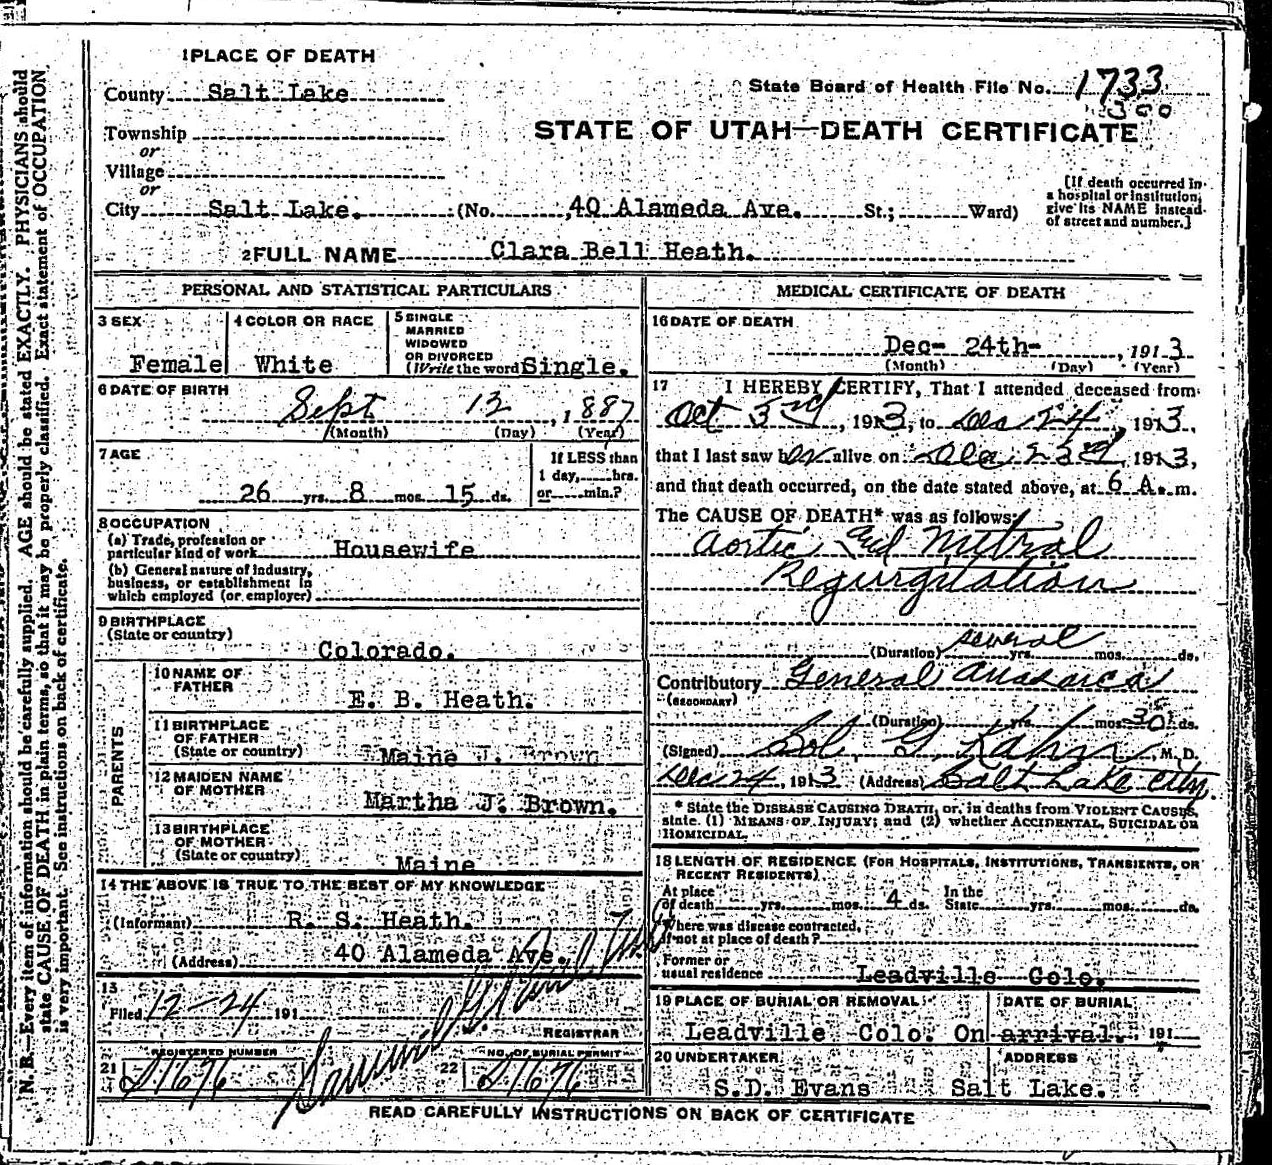 1 PLACE OF DEATH
County Salt Lake
State Board of Health File No. 1733
Township
or
STATE OF UTAH—DEATH CERTIFICATE
Village
or
City Salt Lake. (No. 40 Alameda Ave. St.; Ward)
[If death occurred in
a hospital or institution,
give its NAME instead
of street and number.]
2 FULL NAME Clara Bell Heath.
PERSONAL AND STATISTICAL PARTICULARS
3 SEX
Female
4 COLOR OR RACE
White
5 SINGLE
MARRIED
WIDOWED
OR DIVORCED
(Write the word) Single.
6 DATE OF BIRTH
Sept 12, 1887
(Month) (Day) (Year)
7 AGE
26 yrs. 8 mos. 15 ds.
If LESS than
1 day, hrs.
or min.?
8 OCCUPATION
(a) Trade, profession or
particular kind of work Housewife
(b) General nature of industry,
business, or establishment in
which employed (or employer)
9 BIRTHPLACE
(State or country)
Colorado.
PARENTS
10 NAME OF
FATHER
E. B. Heath.
11 BIRTHPLACE
OF FATHER
(State or country)
Maine J. Brown
12 MAIDEN NAME
OF MOTHER
Martha J. Brown.
13 BIRTHPLACE
OF MOTHER
(State or country)
Maine
14 THE ABOVE IS TRUE TO THE BEST OF MY KNOWLEDGE
(Informant) R. S. Heath.
(Address) 40 Alameda Ave.
15
Filed 12-24 191
REGISTRAR
21 REGISTERED NUMBER
22 NO. OF BURIAL PERMIT
MEDICAL CERTIFICATE OF DEATH
16 DATE OF DEATH
Dec- 24th-, 1913
(Month) (Day) (Year)
17 I HEREBY CERTIFY, That I attended deceased from
Oct 3rd, 1913, to Dec 24, 1913,
that I last saw her alive on Dec 23rd, 1913,
and that death occurred, on the date stated above, at 6 A. m.
The CAUSE OF DEATH* was as follows:
Aortic and Mitral
Regurgitation
(Duration) several yrs. mos. ds.
Contributory General Anasarca
(SECONDARY)
(Duration) yrs. mos. 30 ds.
(Signed) Sol G Kahn, M. D.
Dec 24, 1913 (Address) Salt Lake City.
* State the DISEASE CAUSING DEATH, or, in deaths from VIOLENT CAUSES,
state (1) MEANS OF INJURY; and (2) whether ACCIDENTAL, SUICIDAL OR
HOMICIDAL.
18 LENGTH OF RESIDENCE (FOR HOSPITALS, INSTITUTIONS, TRANSIENTS, OR
RECENT RESIDENTS)
At place
of death yrs. mos. 4 ds. In the
State yrs. mos. ds.
Where was disease contracted,
if not at place of death?
Former or
usual residence Leadville Colo.
19 PLACE OF BURIAL OR REMOVAL
Leadville Colo.
DATE OF BURIAL
On arrival. 191
20 UNDERTAKER
S.D. Evans
ADDRESS
Salt Lake.
READ CAREFULLY INSTRUCTIONS ON BACK OF CERTIFICATE
N. B.—Every item of information should be carefully supplied. AGE should be stated EXACTLY. PHYSICIANS should
state CAUSE OF DEATH in plain terms, so that it may be properly classified. Exact statement of OCCUPATION
is very important. See instructions on back of certificate.